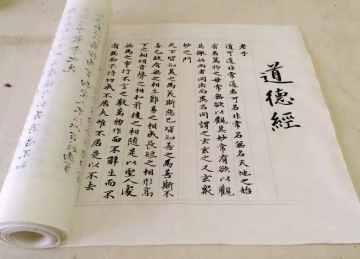 道德經
老子
道可道非常道名可名非常名無名天地之始
有名萬物之母常無欲以觀其妙常有欲以觀
其徼此兩者同出而異名同謂之玄玄之又玄衆
妙之門
天下皆知美之為美斯惡已皆知善之為善斯不
善已故有無之相生難易之相成長短之相形高
下之相傾音聲之相和前後之相隨是以聖人處
無為之事行不言之教萬物作而不辭生而不
有為而不恃功成不居夫唯不居是以不去